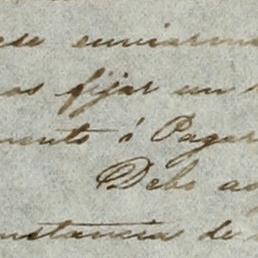 ese enviarme
as fijar un
mento ó Pagar
Debo a
nstancia de